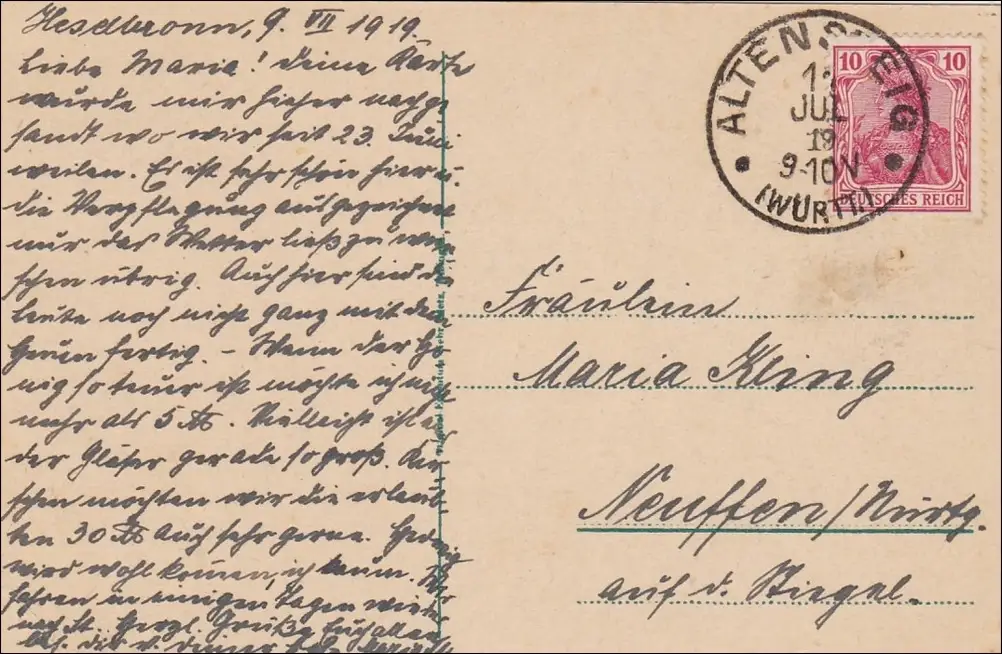 Heselbronn, 9. VII 1919.
Liebe Maria! Deine Karte
wurde mir hieher nachge
sandt wo wir seit 23. Juni
weilen. Es ist sehr schön hier u.
die Verpflegung ausgezeichnet
nur das Wetter ließ zu wün
schen übrig. Auch hier sind die
Leute noch nicht ganz mit dem
Heuen fertig. – Wenn der Ho
nig so teuer ist möchte ich nicht
mehr als 5 ℔. Vielleicht ist
der Gläser gerade so groß. Kir
schen möchten wir die erlaub
ten 30 ℔ auch sehr gerne. Hedwig
wird wohl kommen, ich kaum. Wir
fahren in einigen Tagen wieder
nach St. Herzl. Grüße Euch allen
bes. dir v. deiner
ALTENSTEIG
11
JUL
19
9-10V
(WÜRTT.)
10 10
DEUTSCHES REICH
Fräulein
Maria Kling
Neuffen/Württg.
auf d. Stiegel.